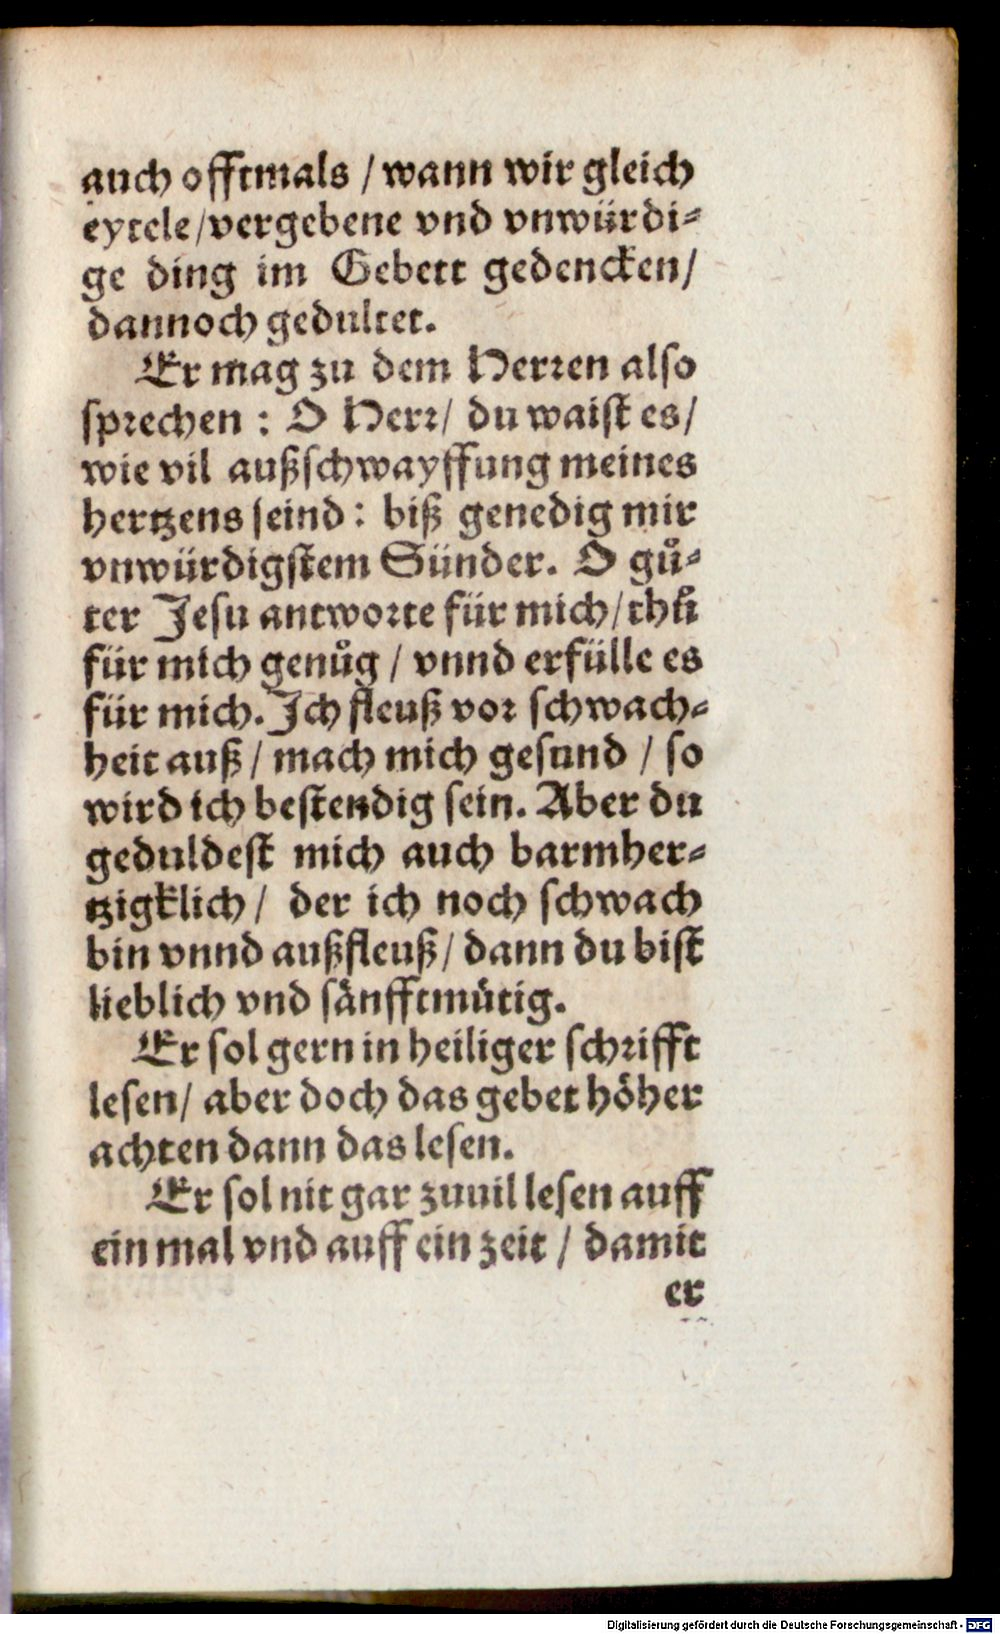 auch offtmals / wann wir gleich
eytele / vergebene vnd vnwürdi⸗
ge ding im Gebett gedencken /
dannoch gedultet.
Er mag zu dem Herꝛen also
spꝛechen : O Herꝛ / du waist es /
wie vil außschwayffung meines
hertzens seind : biß genedig mir
vnwürdigstem Sünder. O gů⸗
ter Jesu antwoꝛte für mich / thů
für mich genůg / vnnd erfülle es
für mich. Ich fleuß voꝛ schwach⸗
heit auß / mach mich gesund / so
wird ich bestendig sein. Aber du
geduldest mich auch barmher⸗
tzigklich / der ich noch schwach
bin vnnd außfleuß / dann du bist
lieblich vnd sänfftmütig.
Er sol gern in heiliger schꝛifft
lesen / aber doch das gebet höher
achten dann das lesen.
Er sol nit gar zuuil lesen auff
ein mal vnd auff ein zeit / damit
er
Digitalisierung gefördert durch die Deutsche Forschungsgemeinschaft - DFG